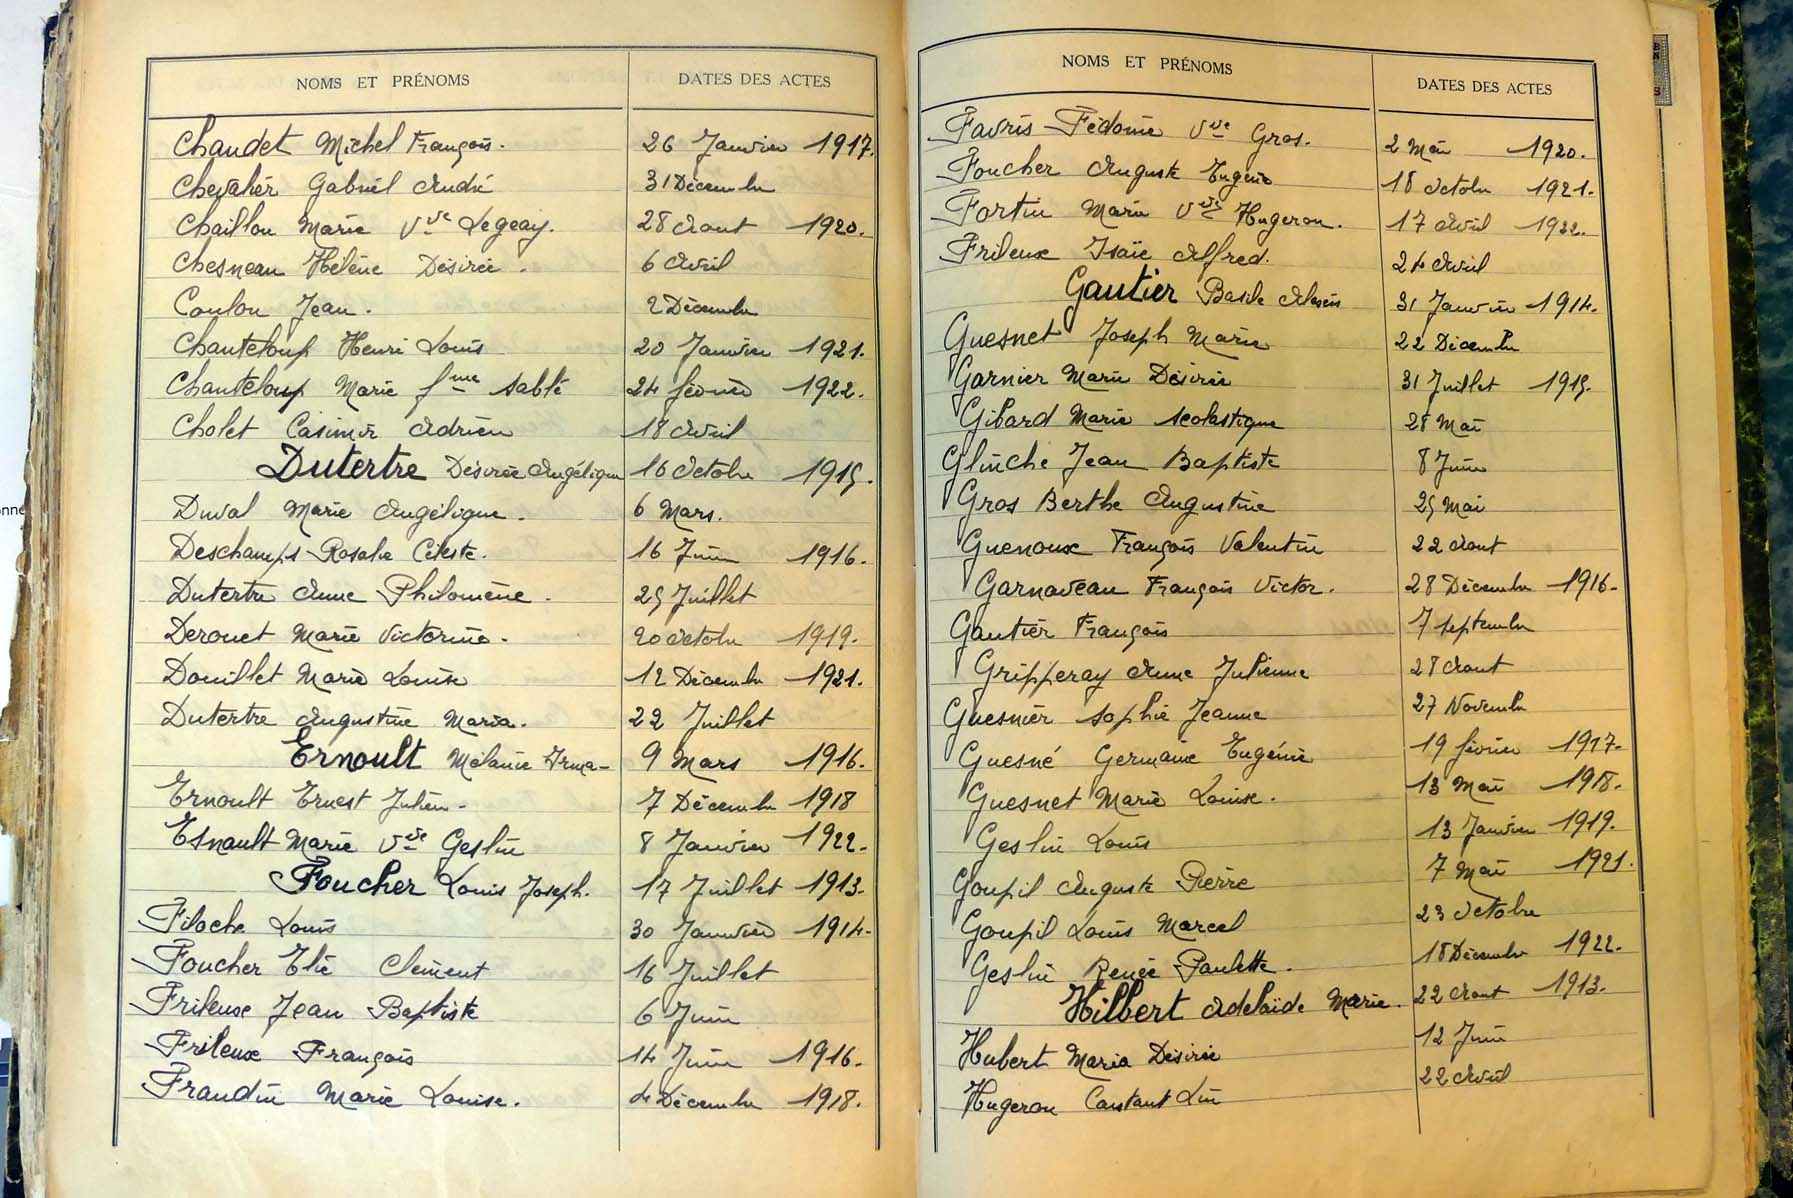 NOMS ET PRÉNOMS DATES DES ACTES
Chaudet Michel François. 26 Janvier 1917.
Chevalier Gabriel André 31 Décembre
Chaillou Marie Vve Legeay. 28 Aout 1920.
Chesneau Hélène Désirée. 6 Avril
Coulon Jean. 2 Décembre
Chanteloup Henri Louis 20 Janvier 1921.
Chanteloup Marie fme Sablé 24 février 1922.
Cholet Casimir Adrien 18 Avril
Dutertre Désirée Angélique 16 Octobre 1915.
Duval Marie Angélique. 6 Mars.
Deschamps Rosalie Céleste. 16 Juin 1916.
Dutertre Anne Philomène. 25 Juillet
Derouet Marie Victorine. 20 Octobre 1919.
Douillet Marie Louise 12 Décembre 1921.
Dutertre Augustine Maria. 22 Juillet
Ernoult Mélanie Irma- 9 Mars 1916.
Ernoult Ernest Julien- 7 Décembre 1918
Esnault Marie Vve Geslin 8 Janvier 1922.
Foucher Louis Joseph. 17 Juillet 1913.
Filoche Louis 30 Janvier 1914.
Foucher Elie Clément 16 Juillet
Frileuse Jean Baptiste 6 Juin
Frileux François 14 Juin 1916.
Fraudin Marie Louise. 4 Décembre 1918.
NOMS ET PRÉNOMS DATES DES ACTES
Favris Fédonie Vve Gros. 2 Mai 1920.
Foucher Auguste Eugène 18 Octobre 1921.
Fortin Marie Vve Hugeron. 17 Avril 1922.
Frileux Isaïe Alfred. 24 Avril
Gautier Basile Alexis 31 Janvier 1914.
Guesnet Joseph Marie 22 Décembre
Garnier Marie Désirée 31 Juillet 1915.
Gibard Marie Scolastique 28 Mai
Glinche Jean Baptiste 8 Juin
Gros Berthe Augustine 25 Mai
Guenoux François Valentin 22 Aout
Garnaveau François Victor. 28 Décembre 1916.
Gautier François 7 Septembre
Gripperay Anne Julienne 28 Aout
Guesnier Sophie Jeanne 27 Novembre
Guesné Germaine Eugénie 19 février 1917.
Guesnet Marie Louise. 13 Mai 1918.
Geslin Louis 13 Janvier 1919.
Goupil Auguste Pierre 7 Mai 1921.
Goupil Louis Marcel 23 Octobre
Geslin Renée Paulette. 18 Décembre 1922.
Hilbert Adelaïde Marie. 22 Aout 1913.
Hubert Maria Désirée 12 Juin
Hugeron Constant Lin 22 Avril